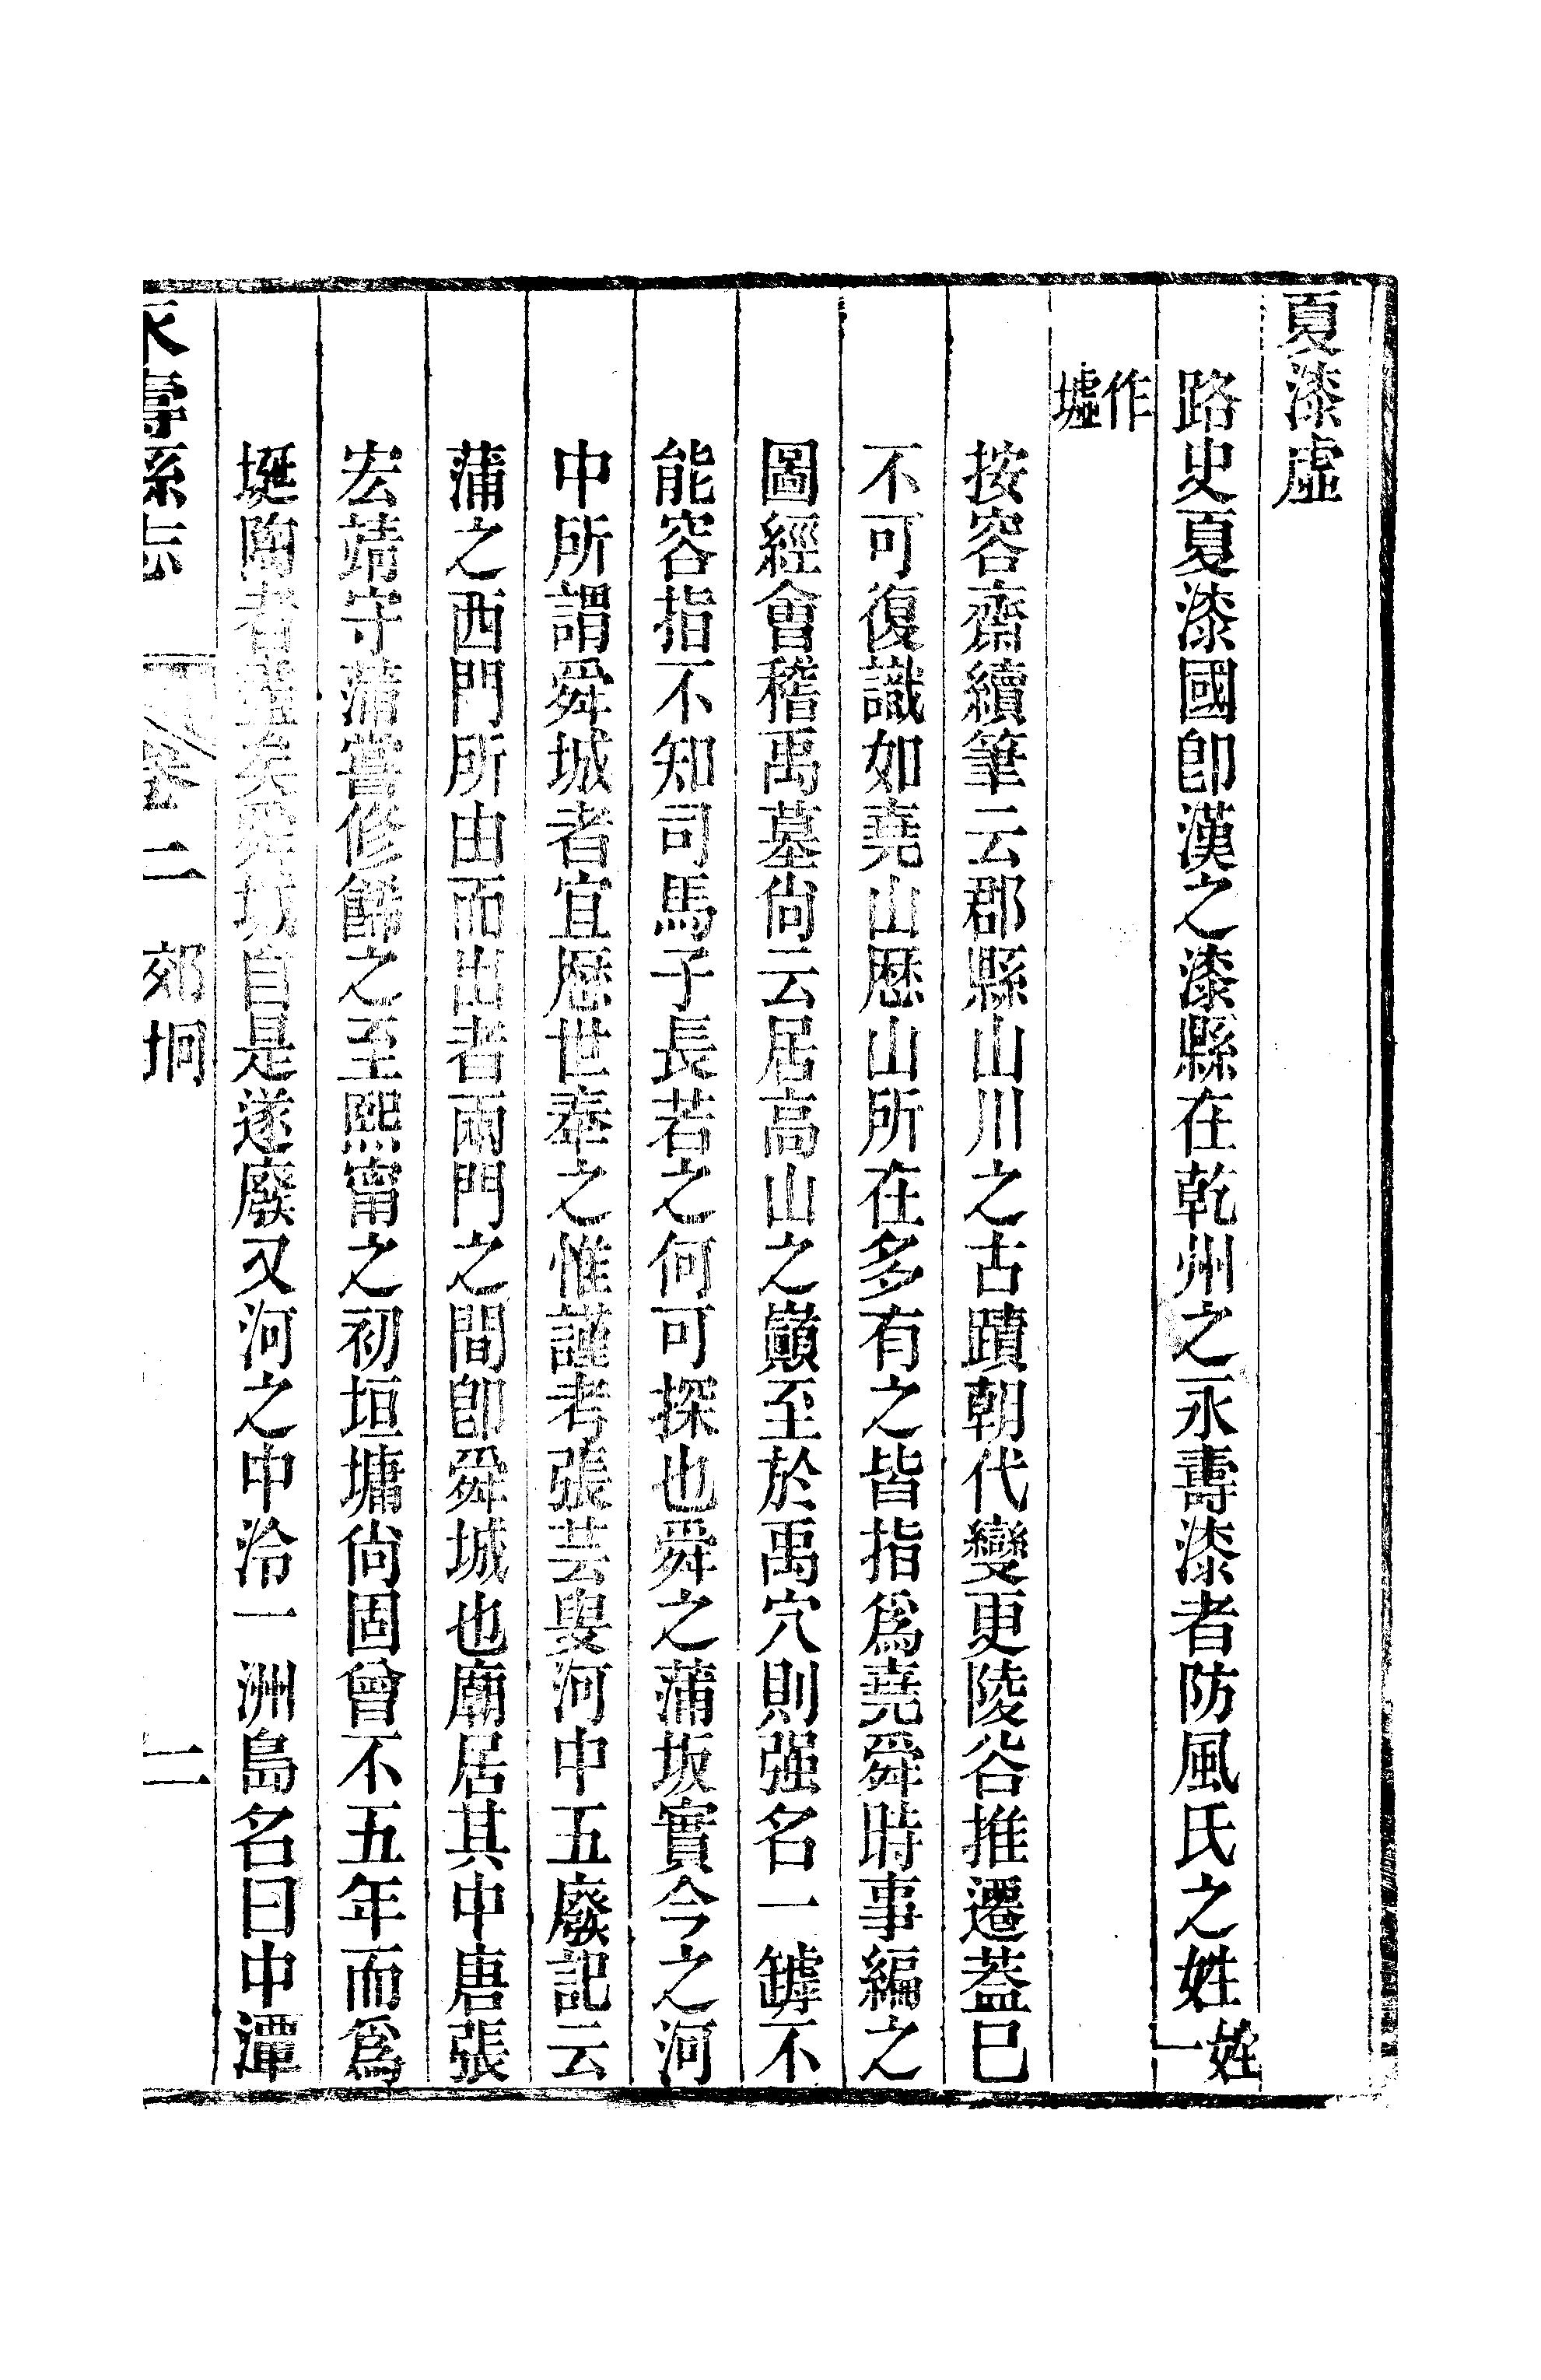 夏漆虛
路史夏漆國卽漢之漆縣在乾州之永壽漆者防風氏之姓姓一
作墟
按容齋續筆云郡縣山川之古蹟朝代變更陵谷推遷蓋已
不可復識如堯山歷山所在多有之皆指爲堯舜時事編之
圖經會稽禹墓尙云居高山之巓至於禹穴則强名一罅不
能容指不知司馬子長若之何可探也舜之蒲坂實今之河
中所謂舜城者宜歷世奉之惟謹考張芸叟河中五廢記云
蒲之西門所由而出者兩門之間卽舜城也廟居其中唐張
宏靖守蒲嘗修飾之至熙甯之初垣墉尙固曾不五年而爲
埏陶者盡矣舜城自是遂廢又河之中泠一洲島名曰中潬
永壽縣志 卷二 郊坰 二